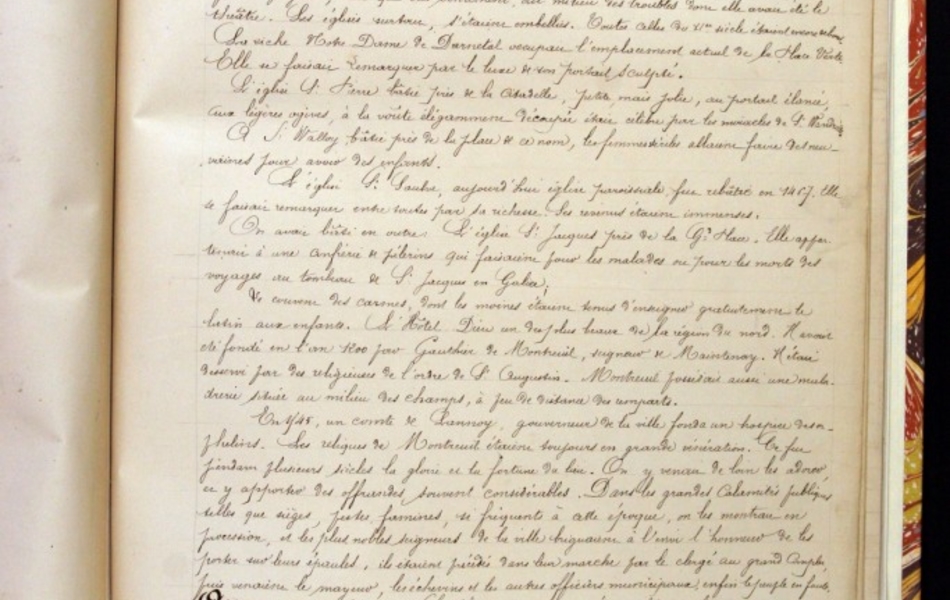 au milieu des troubles dont elle avait été le
théâtre. Les églises surtout, s'étaient embellies. Toutes celles du siècle étaient encore debout.
La riche Notre Dame de Darnetal occupait l'emplacement actuel de la Place Verte
Elle se faisait remarquer par le luxe de son portail sculpté.
L'église St Pierre bâtie près de la Citadelle, petite mais jolie, au portail élancé,
aux légères ogives, à la voûte élégamment découpée était célèbre par les miracles de St
A St Walloy, bâtie près de la place de ce nom, les femmes allaient faire des neu-
vaines pour avoir des enfants.
L'église St Saulve, aujourd'hui église paroissiale fut rebâtie en 1467. Elle
se faisait remarquer entre toutes par sa richesse. Ses revenus étaient immenses.
On avait bâti en outre : L'église St Jacques près de la Gde Place. Elle appar-
tenait à une confrérie de pèlerins qui faisaient pour les malades ou pour les morts des
voyages au tombeau de St Jacques en Galice;
Le couvent des carmes, dont les moines étaient tenus d'enseigner gratuitement le
latin aux enfants. L'Hôtel Dieu un des plus beaux de la région du nord. Il avait
été fondé en l'an 1200 par Gauthier de Montreuil, seigneur de Maintenay. Il était
desservi par des religieuses de l'ordre de St Augustin. Montreuil possédait aussi une mala-
drerie située au milieu des champs, à peu de distance des remparts.
En un comte de Lannoy, gouverneur de la ville fonda un hospice d'or-
phelins. Les reliques de Montreuil étaient toujours en grande vénération. Ce fut
pendant plusieurs siècles la gloire et la fortune du lieu. On y venait de loin les adorer
et y apporter des offrandes souvent considérables. Dans les grandes calamités publiques
telles que sièges, pestes famines, si fréquents à cette époque, on les montrait en
procession, et les plus nobles seigneurs de la ville briguaient à l'envi l'honneur de les
porter sur leurs épaules, ils étaient précédés dans leur marche par le clergé au grand complet,
puis venaient le mayeur, les échevins et les autres officiers municipaux enfin le peuple en foule.